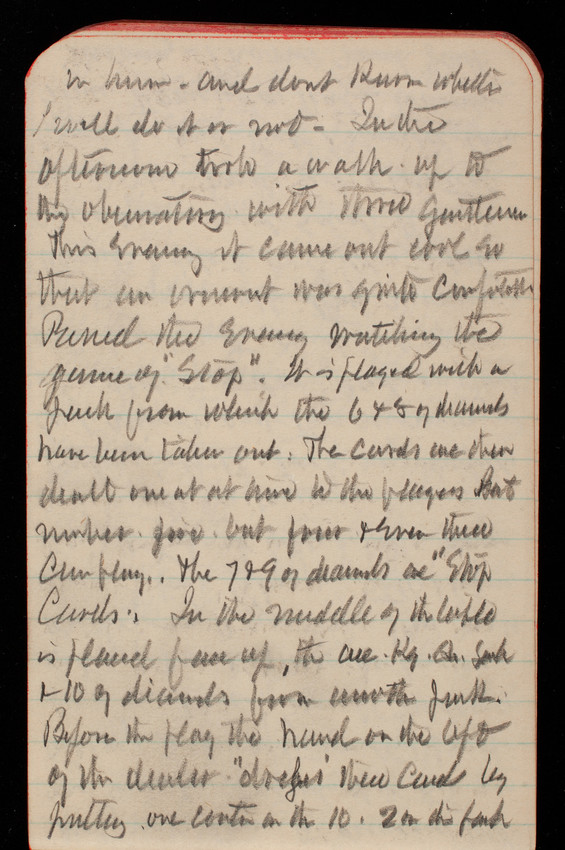 in him - and dont know whether
I will do it or not - In the
afternoon took a walk up to
the observatory with three gentlemen
This evening it came out cool so
that an overcoat was quite comfortable
Passed the evening watching the
game of "Stop". It is played with a
pack from which the 6 & 8 of diamonds
have been taken out. The cards are then
dealt one at at time to the players Best
number five but four & even three
can play.. The 7 & 9 of diamonds are "Stop
Cards". In the middle of the table
is placed face up, the ace. Kg. Qn. Jack
& 10 of diamonds from another pack.
Before the play the hand on the left
of the dealer "dresses" these cards by
putting one counter on the 10. 2 on the jack